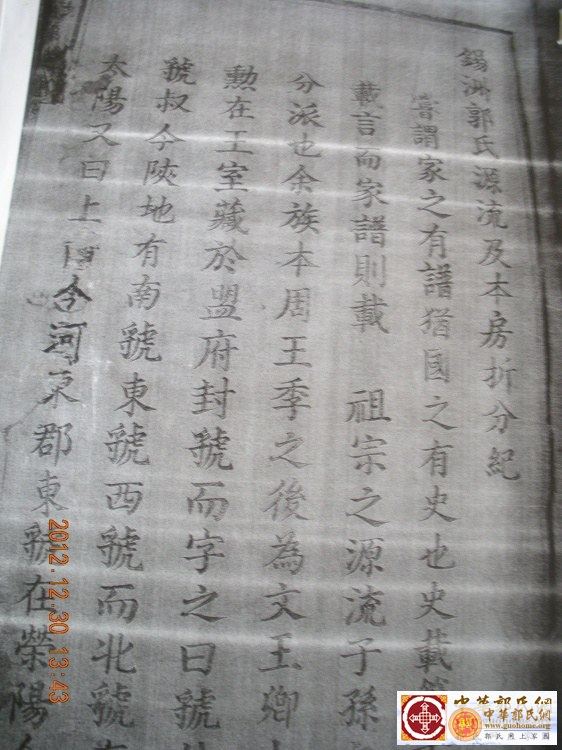 錫洲郭氏源流及本房折分紀
嘗謂家之有譜猶國之有史也史載
載言而家譜則載 祖宗之源流子孫
分派也余族本周王季之後為文王卿
勲在王室藏於盟府封虢而字之曰虢
虢叔今陝地有南虢東虢西虢而北虢
太陽又曰上 今河東郡東虢在滎陽
2012.12.30 13:43
中華郭氏網
中華郭氏網
www.guohome.org
郭氏网上家園